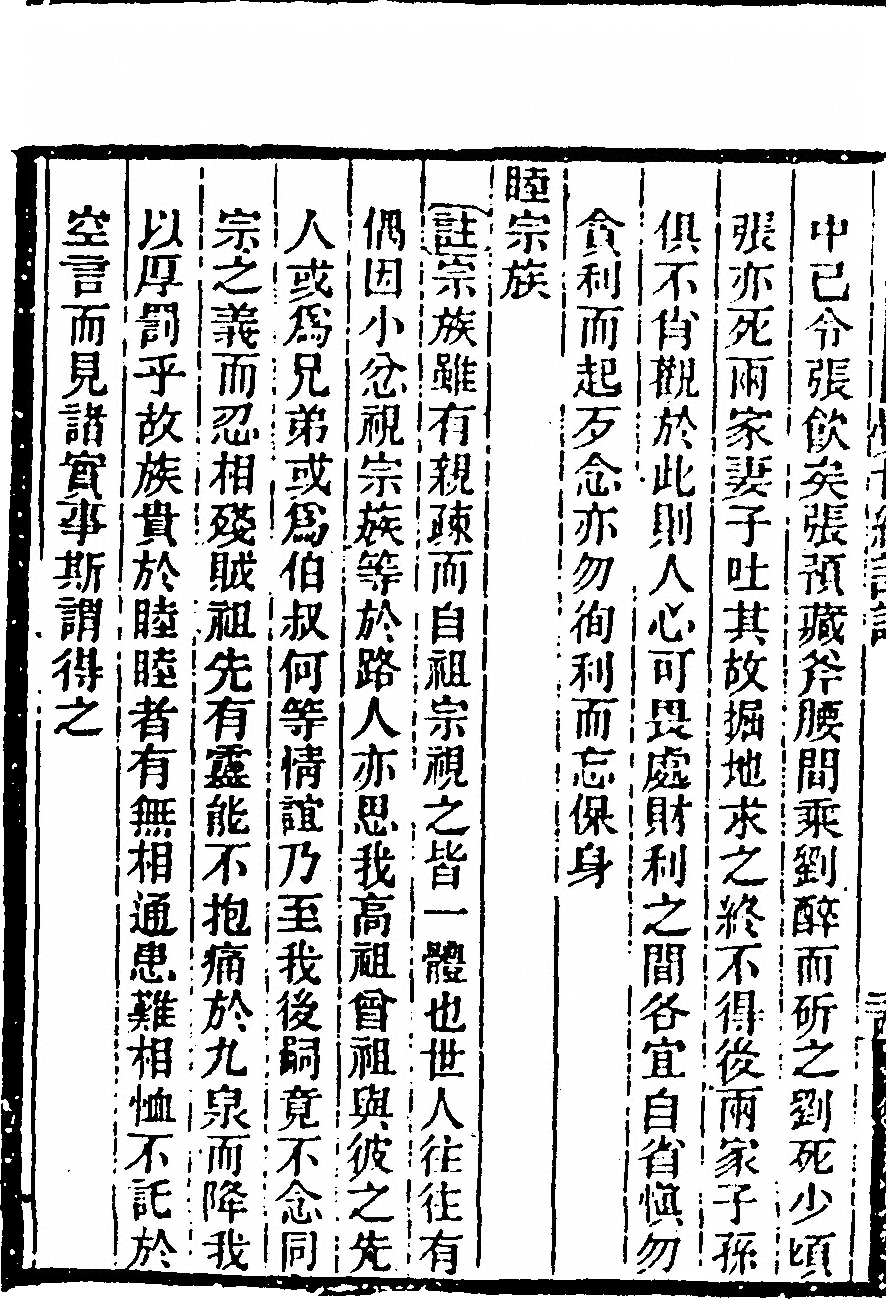 中已令張飲矣張預藏斧腰間乘劉醉而斫之劉死少頃
張亦死兩家妻子吐其故掘地求之終不得後兩家子孫
俱不肖觀於此則人心可畏處財利之間各宜自省慎勿
貪利而起歹念亦勿徇利而忘保身
睦宗族
註宗族雖有親疎而自祖宗視之皆一體也世人往往有
偶因小忿視宗族等於路人亦思我高祖曾祖與彼之先
人或爲兄弟或爲伯叔何等情誼乃至我後嗣竟不念同
宗之義而忍相殘賊祖先有靈能不抱痛於九泉而降我
以厚罰乎故族貴於睦睦者有無相通患難相恤不託於
空言而見諸實事斯謂得之